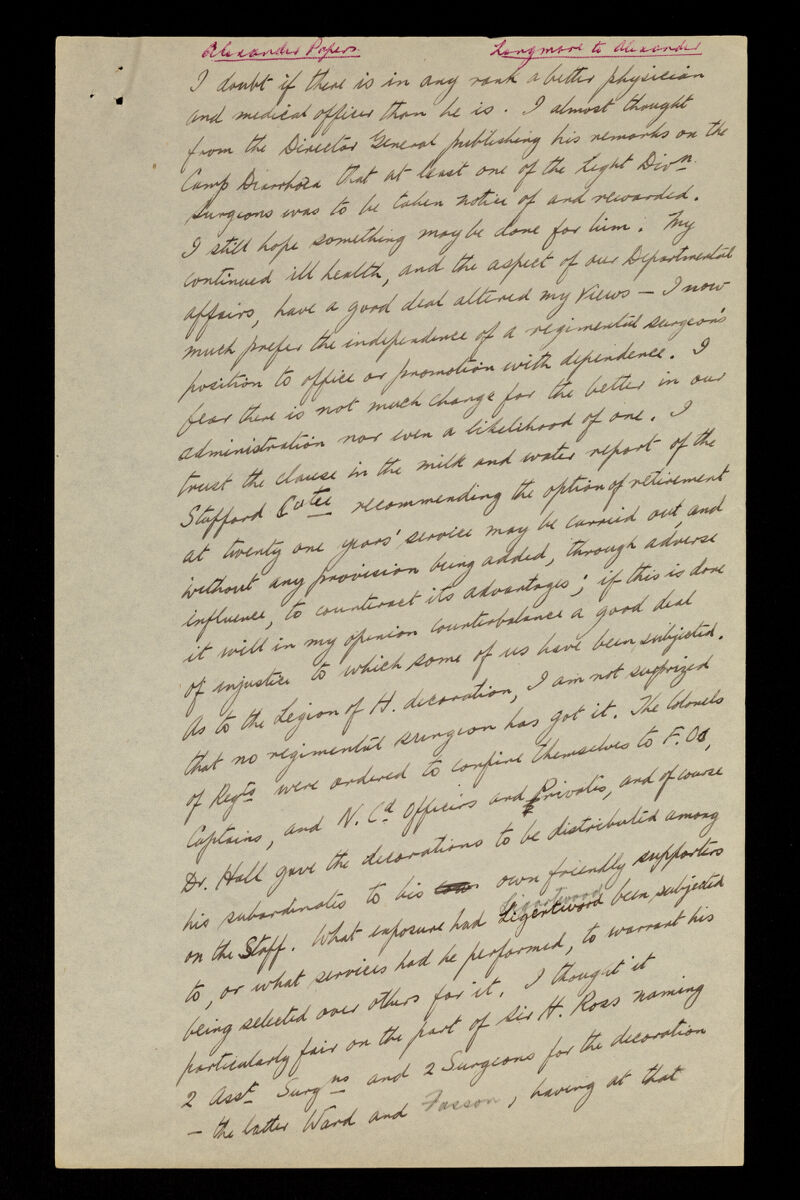 Alexander Papers. Longmore to Alexander
I doubt if there is in any rank a better physician
and medical officer than he is. I almost thought
from the Director General publishing his remarks on the
Camp Diarrhoea that at least one of the Light Divn.
Surgeons was to be taken notice of and rewarded.
I still hope something may be done for him. My
continued ill health, and the aspect of our Departmental
affairs, have a good deal altered my views — I now
much prefer the independence of a regimental surgeon's
position to office or promotion with dependence. I
fear there is not much change for the better in our
administration nor even a likelihood of one. I
trust the clause in the milk and water report of the
Stafford Cotee recommending the option of retirement
at twenty one years' service may be carried out, and
without any provision being added, through adverse
influence, to counteract its advantages; if this is done
it will in my opinion counterbalance a good deal
of injustice to which some of us have been subjected.
As to the Legion of H. decoration, I am not surprized
that no regimental surgeon has got it. The Colonels
of Regts were ordered to confine themselves to F.Os,
Captains, and N.Cd Officers and Privates, and of course
Dr. Hall gave the decorations to be distributed among
his subordinates to his own friendly supporters
on the Staff. What exposure had Ligertwood Ligertwood been subjected
to, or what services had he performed, to warrant his
being selected over others for it. I thought it
particularly fair on the part of Sir H. Ross naming
2 Asst Surgns and 2 Surgeons for the decoration
— the latter Ward and Fasson, having at that